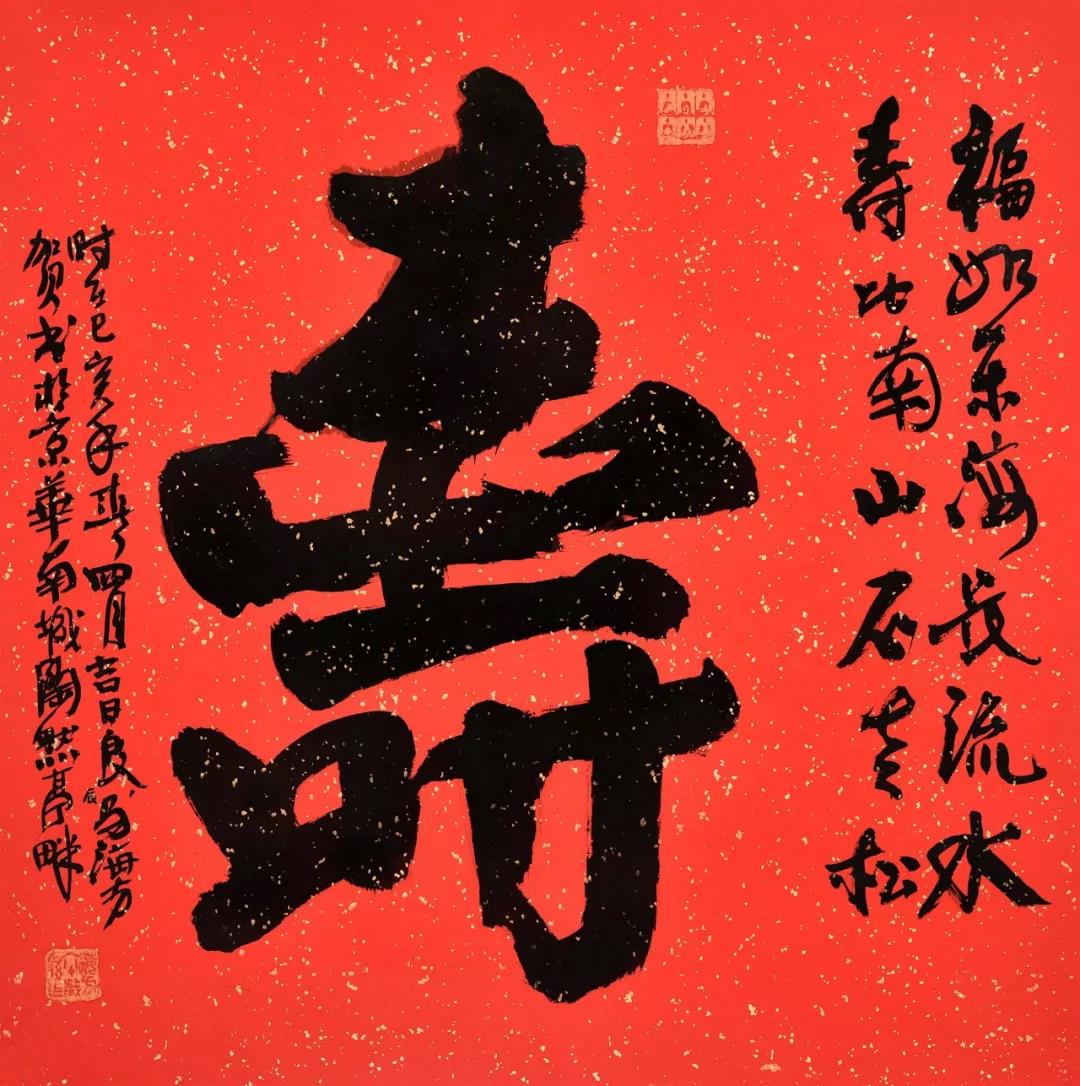 福如东海長流水
寿比南山不老松
寿
时在己亥年春四月吉日良辰马海方
贺书於京華南城陶然亭畔